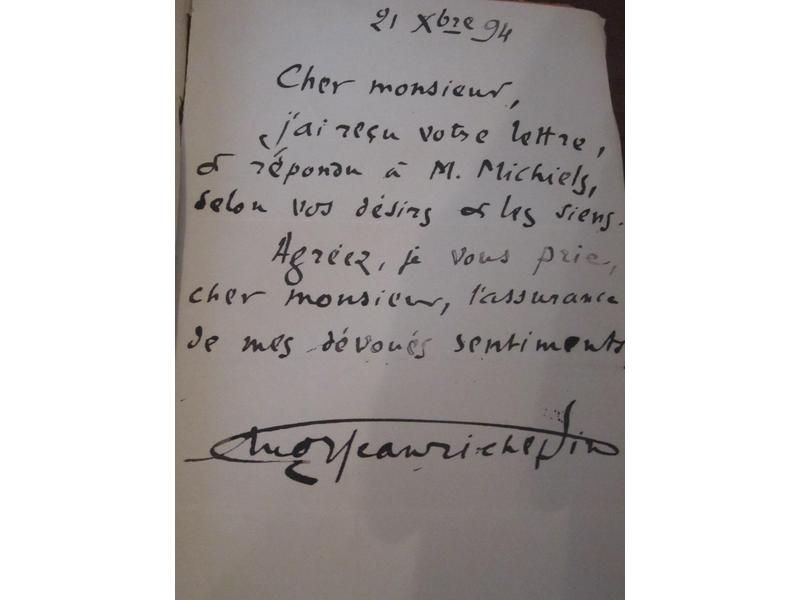 21 Xbre 94
Cher monsieur,
j'ai reçu votre lettre,
et répondu à M. Michiels,
selon vos désirs et les siens.
Agréez, je vous prie,
cher monsieur, l'assurance
de mes dévoués sentiments
Jean richepin